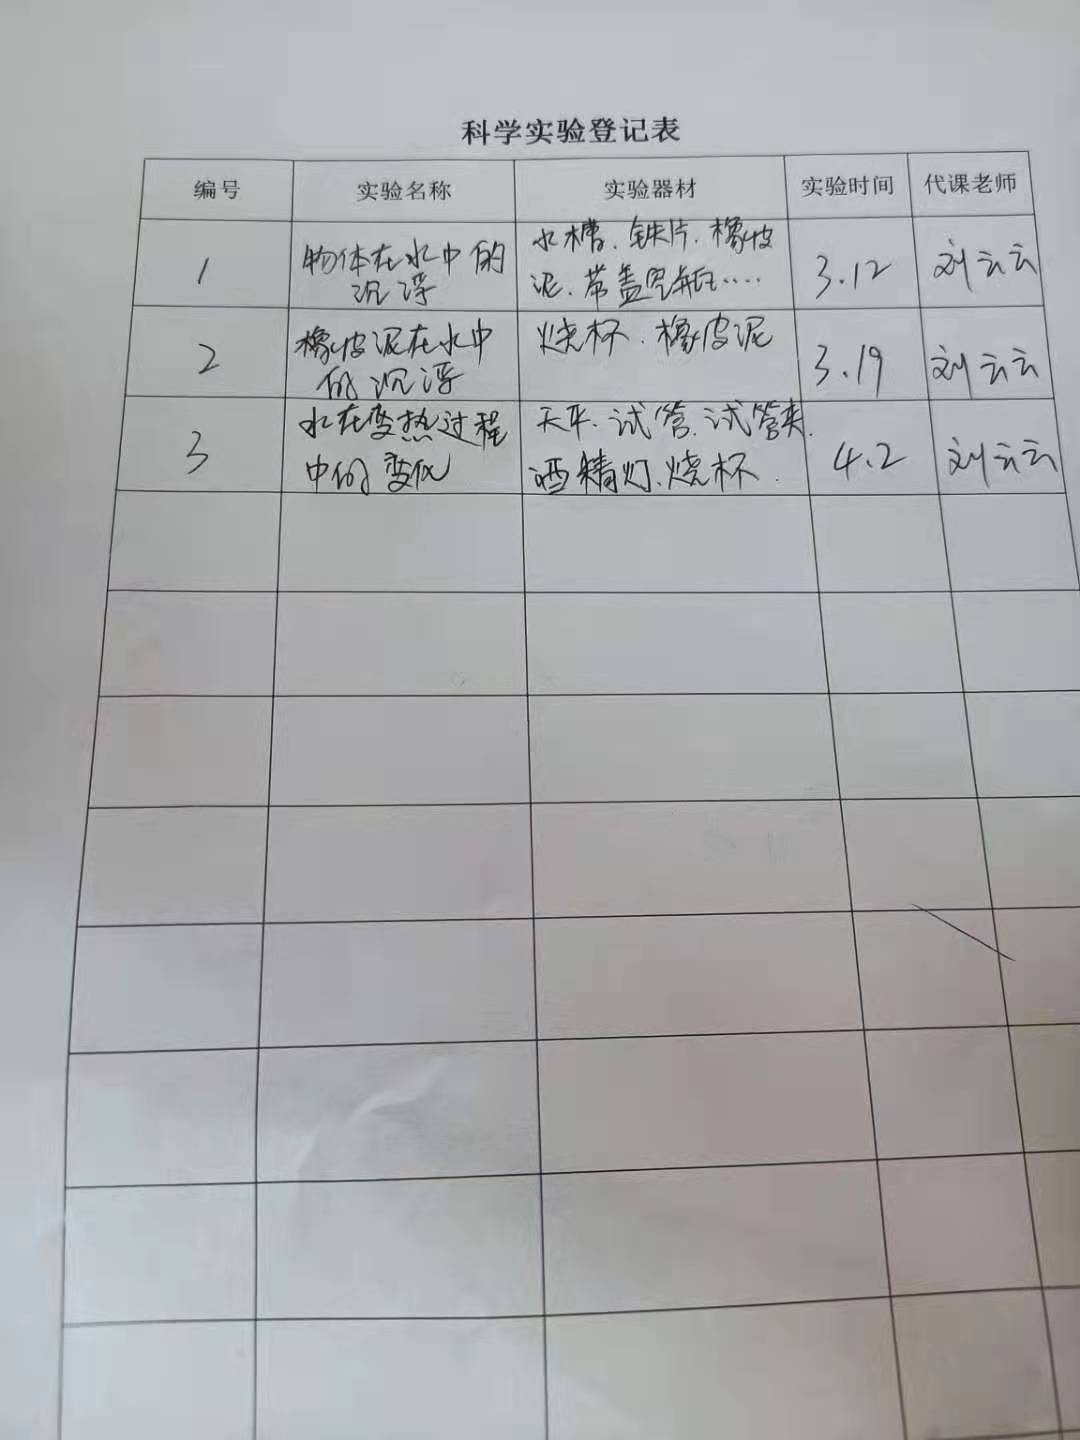 科学实验登记表
编号 实验名称 实验器材 实验时间 代课老师
1 物体在水中的 水槽、铁片、橡皮 3.12 刘云云
沉浮 泥、带盖 瓶……
2 橡皮泥在水中 烧杯、橡皮泥 3.19 刘云云
的沉浮
3 水在变热过程 天平、试管、试管夹、 4.2 刘云云
中的变化 酒精灯、烧杯.